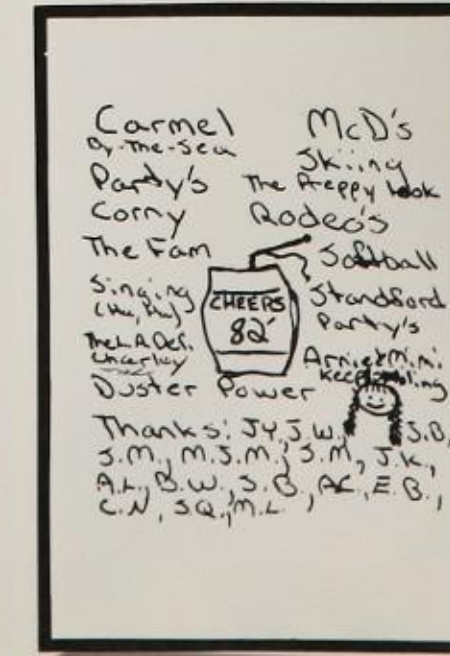 Carmel
By-The-Sea
Party's
Corny
The Fam
Singing
(Hu, Hu)
The L.A Def.
Charley
Duster Power
McD's
Skiing
The Preppy look
Rodeo's
Softball
Standford
Party's
Arnie & Mimi
keep smiling
CHEERS
82'
Thanks: JY, J.W., S.B,
S.M., M.J.M., S.M., J.K.,
A.L., B.W., S.B., AC., E.B.,
C.N, S.Q., M.L